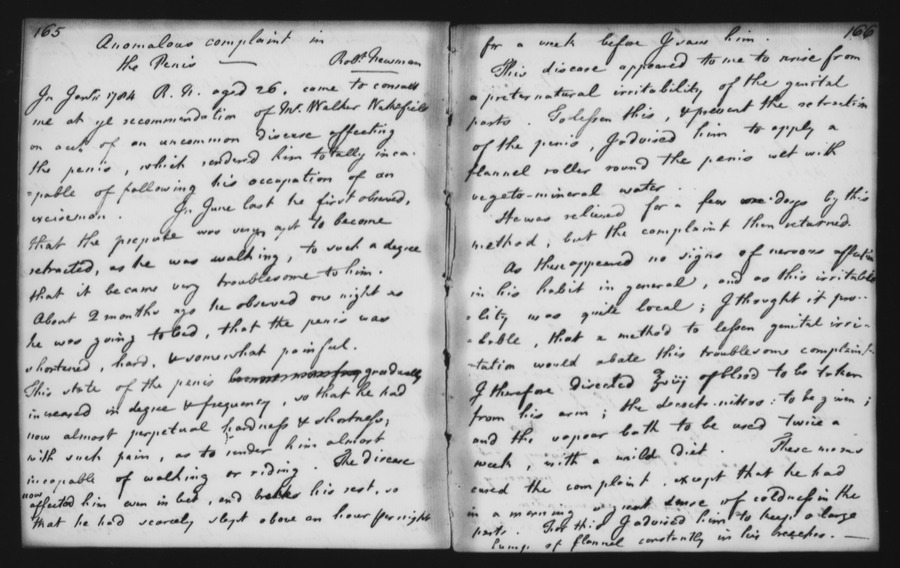 165
Anomalous complaint in
the Penis — Robt. Newsman
In Janry 1784 R. N. aged 26, came to consult
me at ye recommendation of Mr. Walker Wakefield
on acct. of an uncommon disease affecting
the penis, which rendered him totally inca-
-pable of following his occupation of an
exciseman. In June last he first observed,
that the prepuce was very apt to become
retracted, as he was walking, to such a degree
that it became very troublesome to him.
About 2 months ago he observed one night as
he was going to bed, that the penis was
shortened, hard, & somewhat painful.
This state of the penis gradually
increased in degree & frequency, so that he had
now almost perpetual hardness & shortness;
with such pain, as to render him almost
incapable of walking or riding. The disease
now affected him even in bed, and breaks his rest, so
that he had scarcely slept above an hour per night
166
for a week before I saw him.
This disease appeared to me to arise from
a preternatural irritability of the genital
parts. To lessen this, & prevent the retraction
of the penis, I advised him to apply a
flannel roller round the penis wet with
vegeto-mineral water.
He was relieved for a few days by this
method, but the complaint then returned.
As there appeared no signs of nervous affection
in his habit in general, and as this irritabi-
-lity was quite local; I thought it pro-
-bable, that a method to lessen genital irri-
-tation would abate this troublesome complaint.
I therefore directed ℥viij of blood to be taken
from his arm; the decoct. nitros: to be given;
and the vapour bath to be used twice a
week, with a mild diet. These means
cured the complaint, except that he had
in a morning a great sense of coldness in the
parts. For this I advised him to keep a large
lump of flannel constantly in his breeches. —